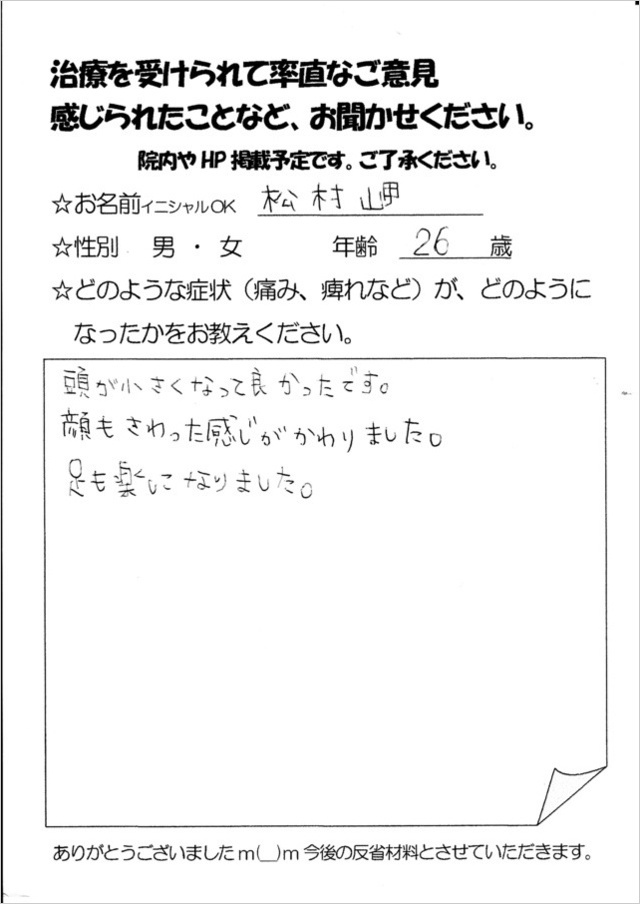 治療を受けられて率直なご意見
感じられたことなど、お聞かせください。
院内やHP掲載予定です。ご了承ください。
☆お名前イニシャルOK 松村岬
☆性別 男・女 年齢 26 歳
☆どのような症状（痛み、痺れなど）が、どのように
なったかをお教えください。
頭が小さくなって良かったです。
顔もさわった感じがかわりました。
足も楽になりました。
ありがとうございましたm(__)m今後の反省材料とさせていただきます。